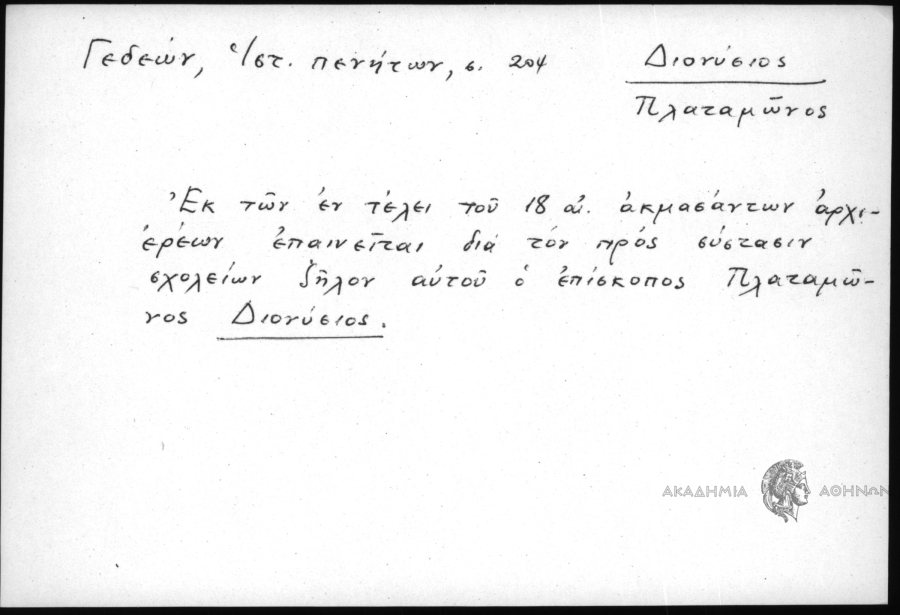 Γεδεών, Ἱστ. πενήτων, σ. 204
Διονύσιος
Πλαταμῶνος
Ἐκ τῶν ἐν τέλει τοῦ 18 αἰ. ἀκμασάντων ἀρχι-
ερέων ἐπαινεῖται διά τόν πρός σύστασιν
σχολείων ζῆλον αὐτοῦ ὁ ἐπίσκοπος Πλαταμῶ-
νος Διονύσιος.
ΑΚΑΔΗΜΙΑ ΑΘΗΝΩΝ